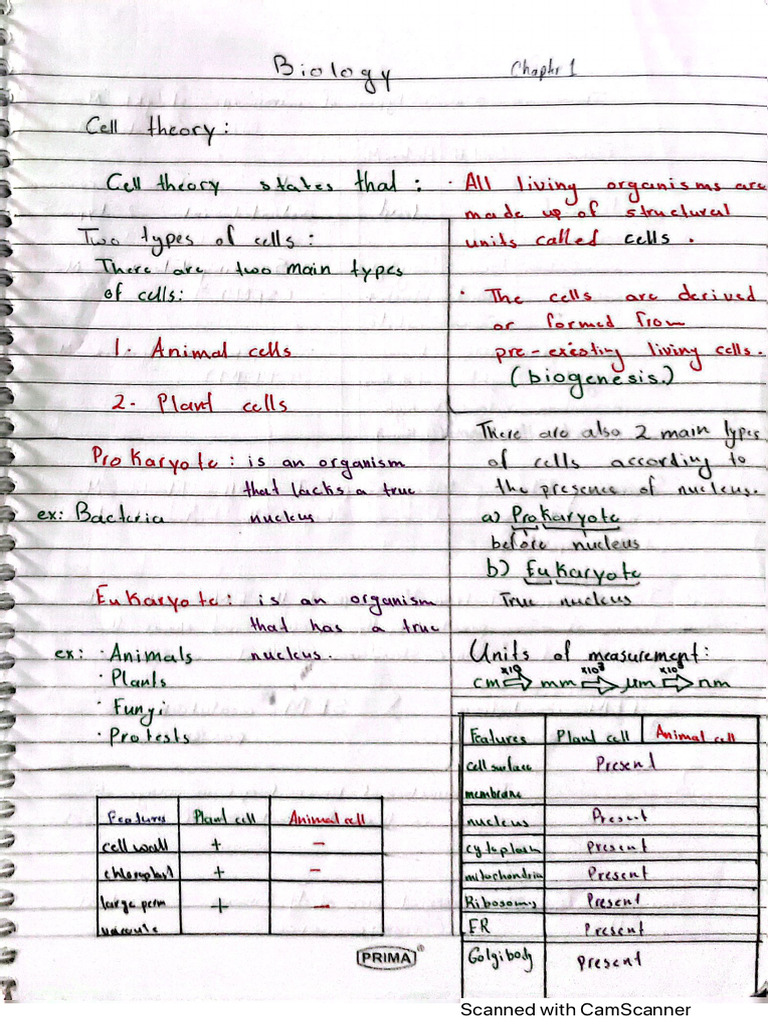 Biology Chaptr 1
Cell theory:
Cell theory states that:
· All living organisms are
made up of structural
units called cells.
· The cells are derived
or formed from
pre-existing living cells.
(biogenesis.)
Two types of cells:
There are two main types
of cells:
1. Animal cells
2. Plant cells
Prokaryote: is an organism
that lacks a true
ex: Bacteria nucleus
Eukaryote: is an organism
that has a true
ex: · Animals nucleus.
· Plants
· Fungi
· Protests
There are also 2 main types
of cells according to
the presence of nucleus.
a) Prokaryote
before nucleus
b) Eukaryote
True nucleus
Units of measurement:
x10 x10³ x10³
cm ⇒ mm ⇒ µm ⇒ nm
Features Plant cell Animal cell
cell wall + -
chloroplast + -
large perm + -
vacuole
Features Plant cell Animal cell
cell surface Present
membrane
nucleus Present
cytoplasm Present
mitochondria Present
Ribosoms Present
ER Present
Golgibody Present
PRIMA®
Scanned with CamScanner